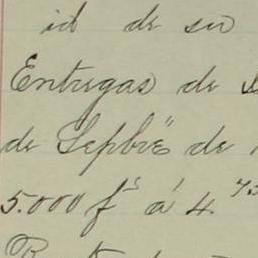 id de su
Entregas de
de Sepbre" de
5.000 fs á 4.75